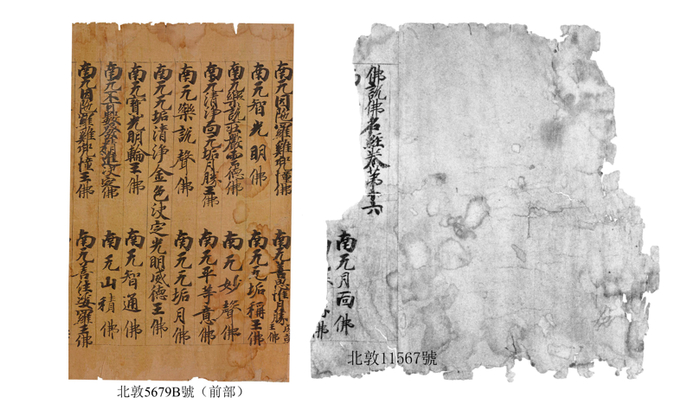 南无因陀羅雞兜幢佛
南无善思惟勝
南无智光明佛
南无无垢稱王佛
南无樂說莊嚴雲德佛
南无妙聲佛
南无清淨南无垢
勝王佛
南无平等意佛
南无樂說聲佛
南无无垢月佛
南无无垢清淨金色決定光明威德王佛
南无寶光明輪王佛
南无智通佛
南无不可數發精進決定佛
南无山積佛
南无因陀羅雞兜幢王佛
南无善住娑羅王佛
北敦5679B號（前部）
佛說佛名經卷第十六
南无月面佛
北敦11567號